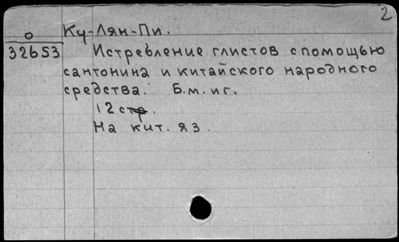 2
о Ку-Лян-Пи.
32653 Истребление глистов с помощью
сантонина и китайского народного
средства. Б.м. и г.
12 стр.
На кит. яз.